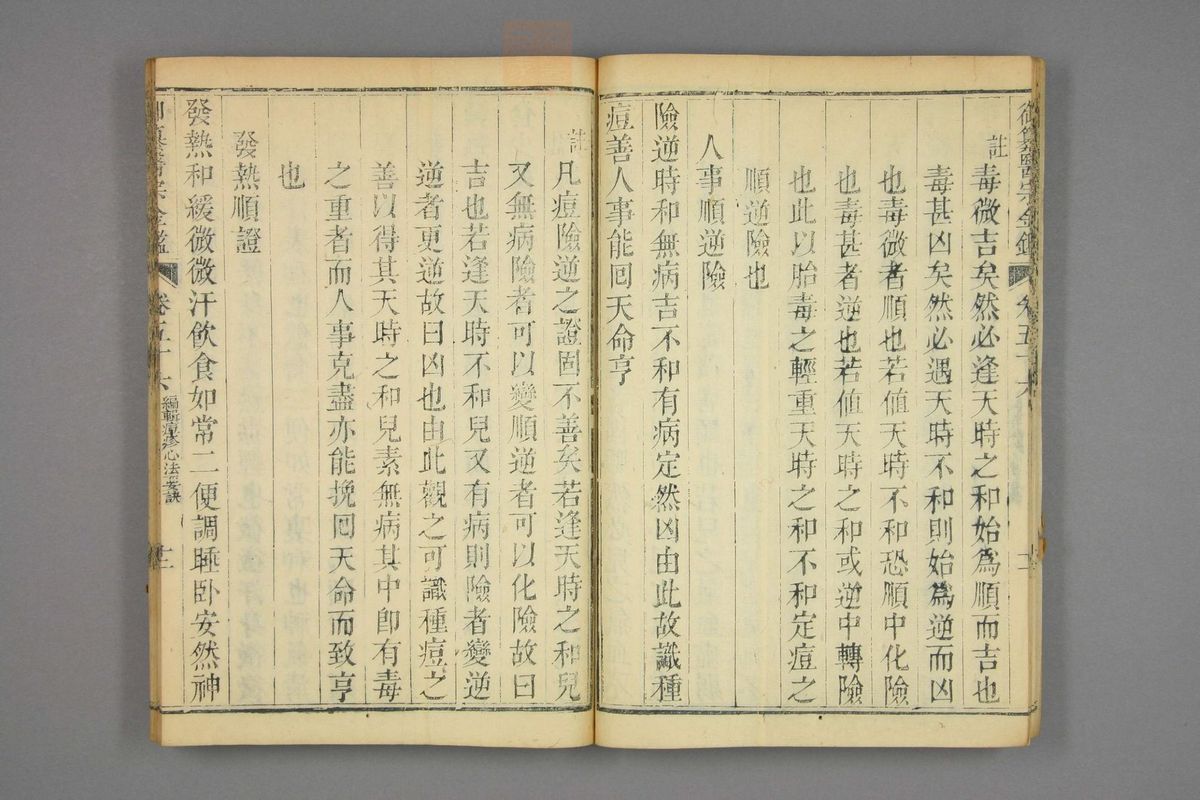 御纂醫宗金鑑 卷五十六
註
毒微吉矣然必逢天時之和始爲順而吉也
毒甚凶矣然必遇天時不和則始爲逆而凶
也毒微者順也若値天時不和恐順中化險
也毒甚者逆也若値天時之和或逆中轉險
也此以胎毒之輕重天時之和不和定痘之
順逆險也
人事順逆險
險逆時和無病吉不和有病定然凶由此故識種
痘善人事能囘天命亨
註
凡痘險逆之證固不善矣若逢天時之和兒
又無病險者可以變順逆者可以化險故曰
吉也若逢天時不和兒又有病則險者變逆
逆者更逆故曰凶也由此觀之可識種痘之
善以得其天時之和兒素無病其中卽有毒
之重者而人事克盡亦能挽囘天命而致亨
也
發熱順證
發熱和緩微微汗飮食如常二便調睡卧安然神
卷五十六 編輯痘疹心法要訣